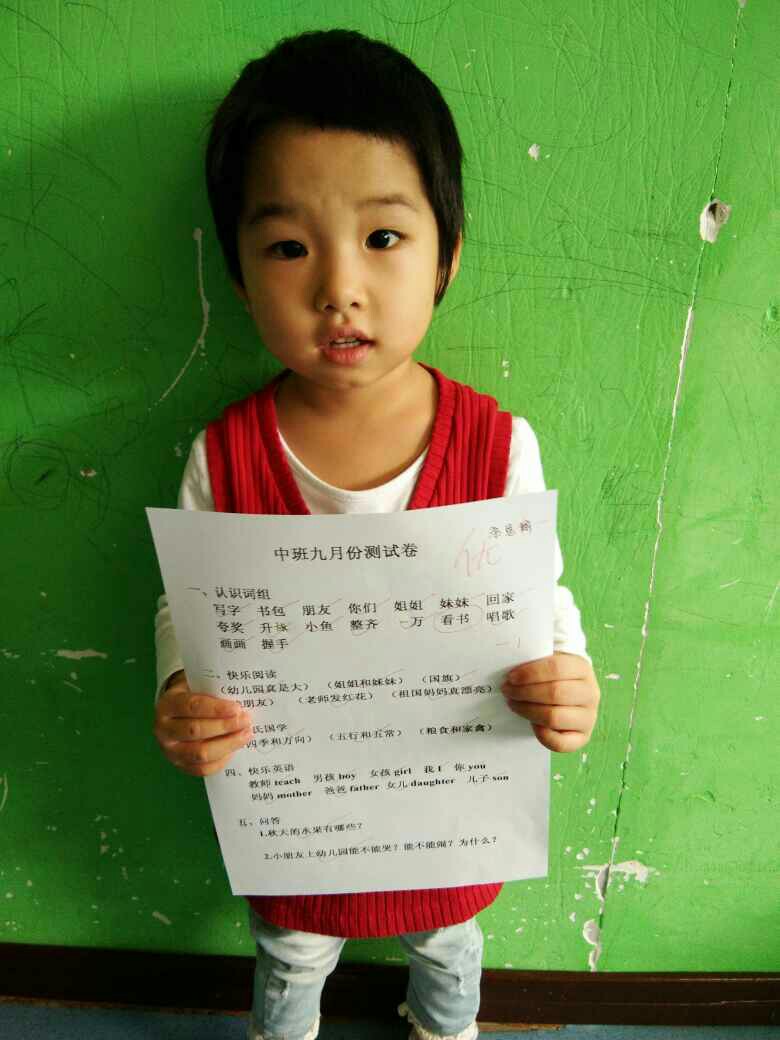 中班九月份测试卷
优
一、认识词组
写字 书包 朋友 你们 姐姐 妹妹 回家
夸奖 升旗 小鱼 整齐 一万 看书 唱歌
画画 握手
一1
二、快乐阅读
(幼儿园真是大) (姐姐和妹妹) (国旗)
朋友) (老师发红花) (祖国妈妈真漂亮)
氏国学
四季和方向) (五行和五常) (粮食和家禽)
四、快乐英语
教师 teach 男孩 boy 女孩 girl 我 I 你 you
妈妈 mother 爸爸 father 女儿 daughter 儿子 son
五、问答
1.秋天的水果有哪些?
2.小朋友上幼儿园能不能哭?能不能闹?为什么?